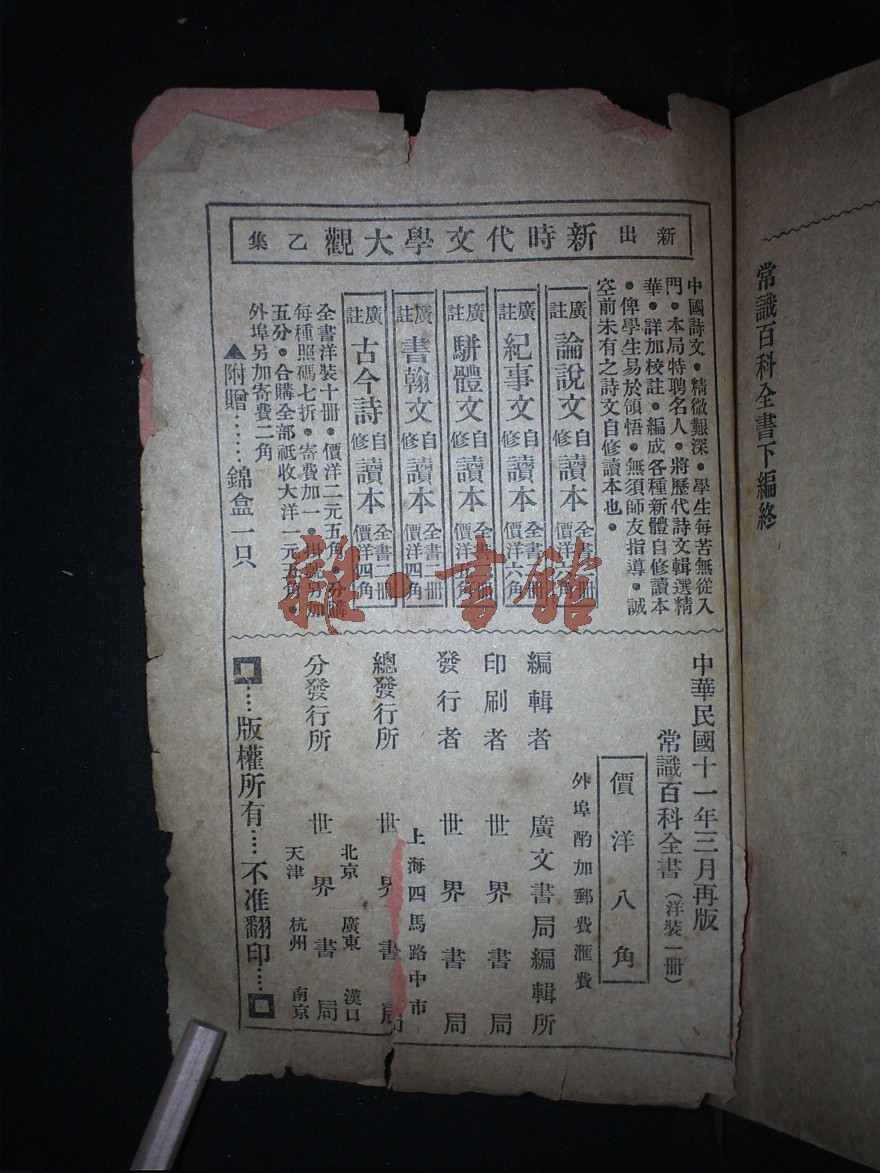 常識百科全書下編終
新出 新時代文學大觀 乙集
中國詩文●精微艱深●學生每苦無從入
門●本局特聘名人●將歷代詩文輯選精
華●詳加校註●編成各種新體自修讀本
●俾學生易於領悟●無須師友指導●誠
空前未有之詩文自修讀本也●
廣註 論說文 自修 讀本 全書二冊 價洋六角
廣註 紀事文 自修 讀本 全書二冊 價洋六角
廣註 駢體文 自修 讀本 全書二冊 價洋五角
廣註 書翰文 自修 讀本 全書二冊 價洋四角
廣註 古今詩 自修 讀本 全書二冊 價洋四角
全書洋裝十冊●價洋二元五角●分購
每種照碼七折●寄費加一●掛號另加
五分●合購全部祇收大洋一元五角●
外埠另加寄費二角
▲附贈……錦盒一只
中華民國十一年三月再版
常識百科全書(洋裝一冊)
價洋八角
外埠酌加郵費滙費
編輯者 廣文書局編輯所
印刷者 世界書局
發行者 世界書局
上海四馬路中市
總發行所 世界書局
北京 廣東 漢口
分發行所 世界書局
天津 杭州 南京
版權所有……不准翻印……
雜·書館